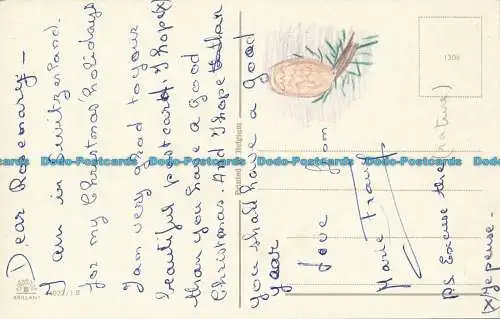 Dear Rosemary –
I am in Switzerland.
for my Christmas' holidays
I am very glad to your
beautiful postcard. I hope(x)
than you have a good
Christmas. And I hope than
you shall have a good
year
Love from
Marie Franç
PS Excuse the
(x) Je pense.
Printed in Belgium
1398
BRILLANT
Dodo-Postcards Dodo-Postcards Dodo-Postcards Dodo-Postcards Dodo-Postcards